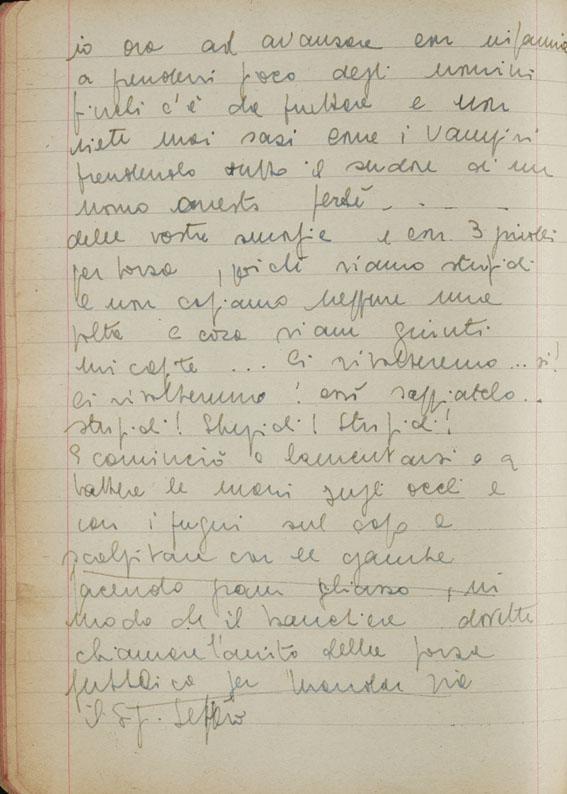 io ora ad avanzare con
a prendervi poco degli uomini
finchè c'è da fruttare e non
siete mai sazi come i Vampiri
prendendo tutto il sudore di un
uomo onesto perchè . - . -
delle vostre smorfie e con 3
per forza, poichè siamo stupidi
e non capiamo neppure una
volta a cosa siam giunti
mi capite ... Ci rivolteremo ... si!
Ci rivolteremo! così sappiatelo..
stupidi! Stupidi! Stupidi!
E cominciò a lamentarsi e a
battere le mani sugli occhi e
con i pugni sul capo e
scalpitare con le gambe
facendo gran chiasso, in
modo che il banchiere dovette
chiamare l'aiuto della forza
pubblica per mandar via
il Sig.